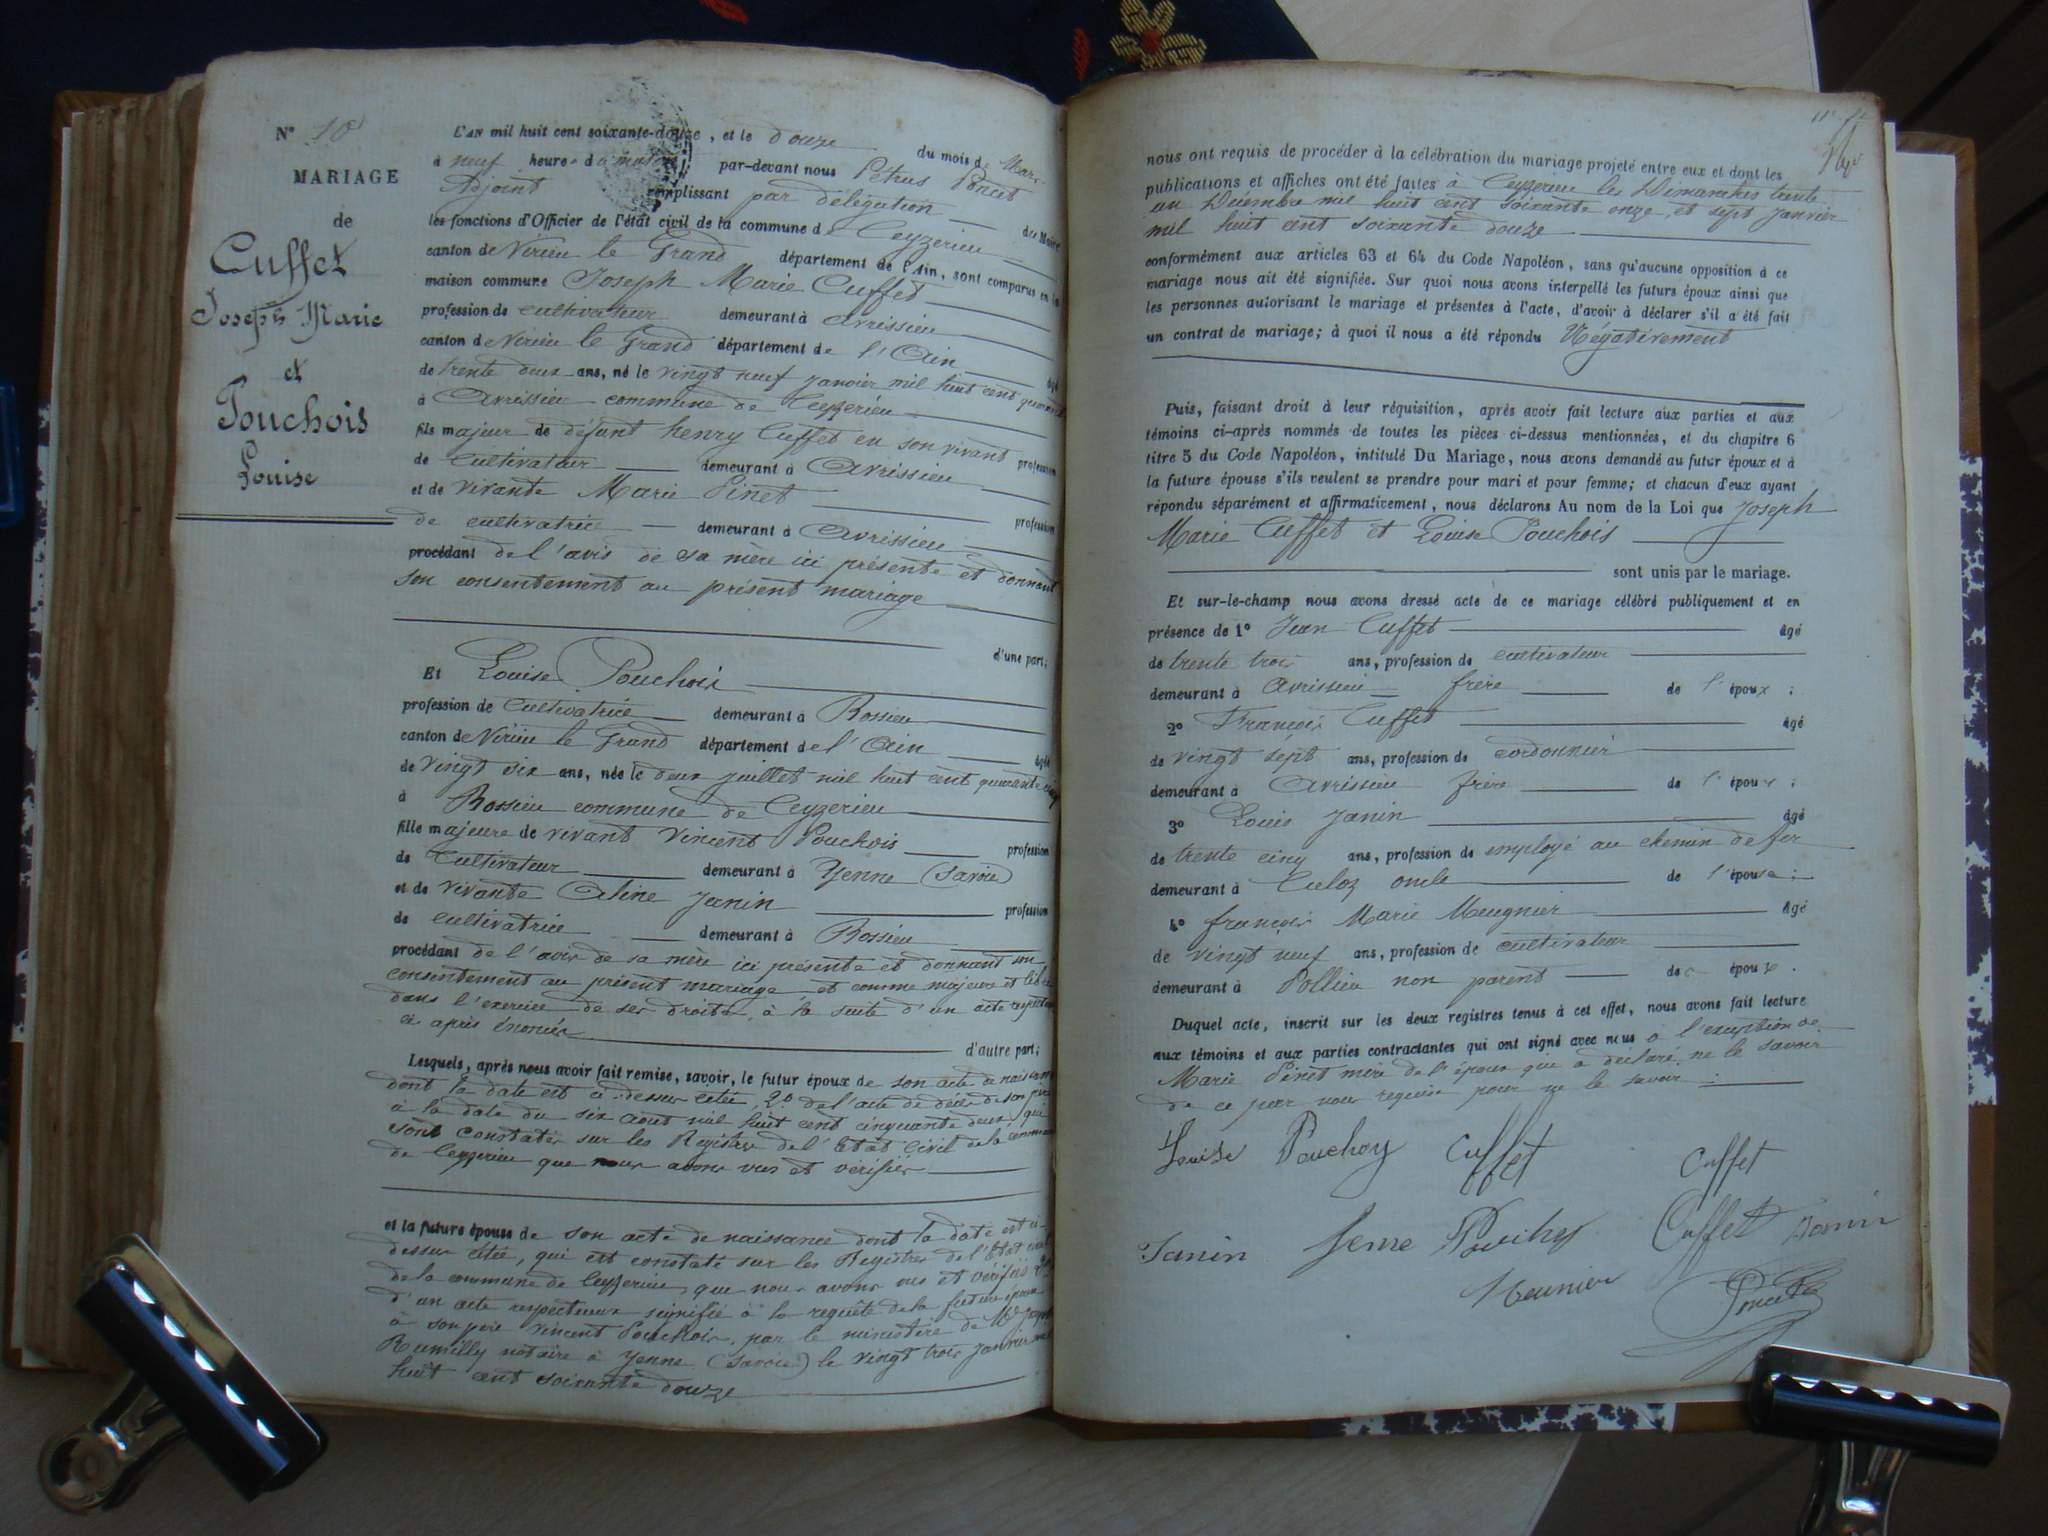 N° 10
MARIAGE
de
Cuffet
Joseph Marie
et
Pouchois
Louise
L'AN mil huit cent soixante-douze, et le douze du mois de Mars
à neuf heures du matin par-devant nous Pétrus Poncet
Adjoint remplissant par délégation du Maire
les fonctions d'Officier de l'état civil de la commune de Ceyzerieu
canton de Virieu le Grand département de l'Ain, sont comparus en la
maison commune Joseph Marie Cuffet
profession de cultivateur demeurant à Avrissieu
canton de Virieu le Grand département de l'Ain âgé
de trente deux ans, né le vingt neuf janvier mil huit cent quarante
à Avrissieu commune de Ceyzerieu
fils majeur de défunt henry Cuffet en son vivant profession
de Cultivateur demeurant à Avrissieu
et de vivante Marie Pinet profession
de cultivatrice demeurant à Avrissieu
procédant de l'avis de sa mère ici présente et donnant
son consentement au présent mariage
d'une part;
Et Louise Pouchois
profession de Cultivatrice demeurant à Rossieu
canton de Virieu le Grand département de l'Ain âgée
de vingt six ans, née le deux juillet mil huit cent quarante cinq
à Rossieu commune de Ceyzerieu
fille majeure de vivant Vincent Pouchois profession
de Cultivateur demeurant à Yenne (Savoie)
et de vivante Aline Janin profession
de cultivatrice demeurant à Rossieu
procédant de l'avis de sa mère ici présente et donnant son
consentement au présent mariage et comme majeure et libre
dans l'exercice de ses droits, à la suite d'un acte respectueux
ci après énoncés
d'autre part;
Lesquels, après nous avoir fait remise, savoir, le futur époux de son acte de naissance
dont la date est ci-dessus citée, 2° de l'acte de décès de son père
à la date du six aout mil huit cent cinquante deux, qui
sont constatés sur les Registres de l'Etat Civil de la commune
de Ceyzerieu que nous avons vus et vérifiés
et la future épouse de son acte de naissance dont la date est ci-
dessus citée, qui est constaté sur les Registres de l'Etat civil
de la commune de Ceyzerieu, que nous avons vus et vérifiés 2°
d'un acte respectueux signifié à la requête de la future épouse
à son père Vincent Pouchois, par le ministère de Me
Rumilly notaire à Yenne (Savoie) le vingt trois janvier mil
huit cent soixante douze
nous ont requis de procéder à la célébration du mariage projeté entre eux et dont les
publications et affiches ont été faites à Ceyzerieu les Dimanches trente
un Décembre mil huit cent soixante onze, et sept janvier
mil huit cent soixante douze
conformément aux articles 63 et 64 du Code Napoléon, sans qu'aucune opposition à ce
mariage nous ait été signifiée. Sur quoi nous avons interpellé les futurs époux ainsi que
les personnes autorisant le mariage et présentes à l'acte, d'avoir à déclarer s'il a été fait
un contrat de mariage; à quoi il nous a été répondu Négativement
Puis, faisant droit à leur réquisition, après avoir fait lecture aux parties et aux
témoins ci-après nommés de toutes les pièces ci-dessus mentionnées, et du chapitre 6
titre 5 du Code Napoléon, intitulé Du Mariage, nous avons demandé au futur époux et à
la future épouse s'ils veulent se prendre pour mari et pour femme; et chacun d'eux ayant
répondu séparément et affirmativement, nous déclarons Au nom de la Loi que Joseph
Marie Cuffet et Louise Pouchois
sont unis par le mariage.
Et sur-le-champ nous avons dressé acte de ce mariage célébré publiquement et en
présence de 1° Jean Cuffet âgé
de trente trois ans, profession de cultivateur
demeurant à Avrissieu frère de l'époux;
2° François Cuffet âgé
de vingt sept ans, profession de cordonnier
demeurant à Avrissieu frère de l'époux;
3° Louis Janin âgé
de trente cinq ans, profession de employé au chemin de fer
demeurant à Culoz oncle de l'épouse;
4° françois Marie Meugnier âgé
de vingt neuf ans, profession de cultivateur
demeurant à Pollieu non parent de épouse.
Duquel acte, inscrit sur les deux registres tenus à cet effet, nous avons fait lecture
aux témoins et aux parties contractantes qui ont signé avec nous à l'exception de
Marie Pinet mère de l'époux qui a déclaré ne le savoir
de ce par nous requise pour ne le savoir
Louise Pouchoy Cuffet Cuffet
Janin Pouchoy Cuffet Janin
Meunier Poncet